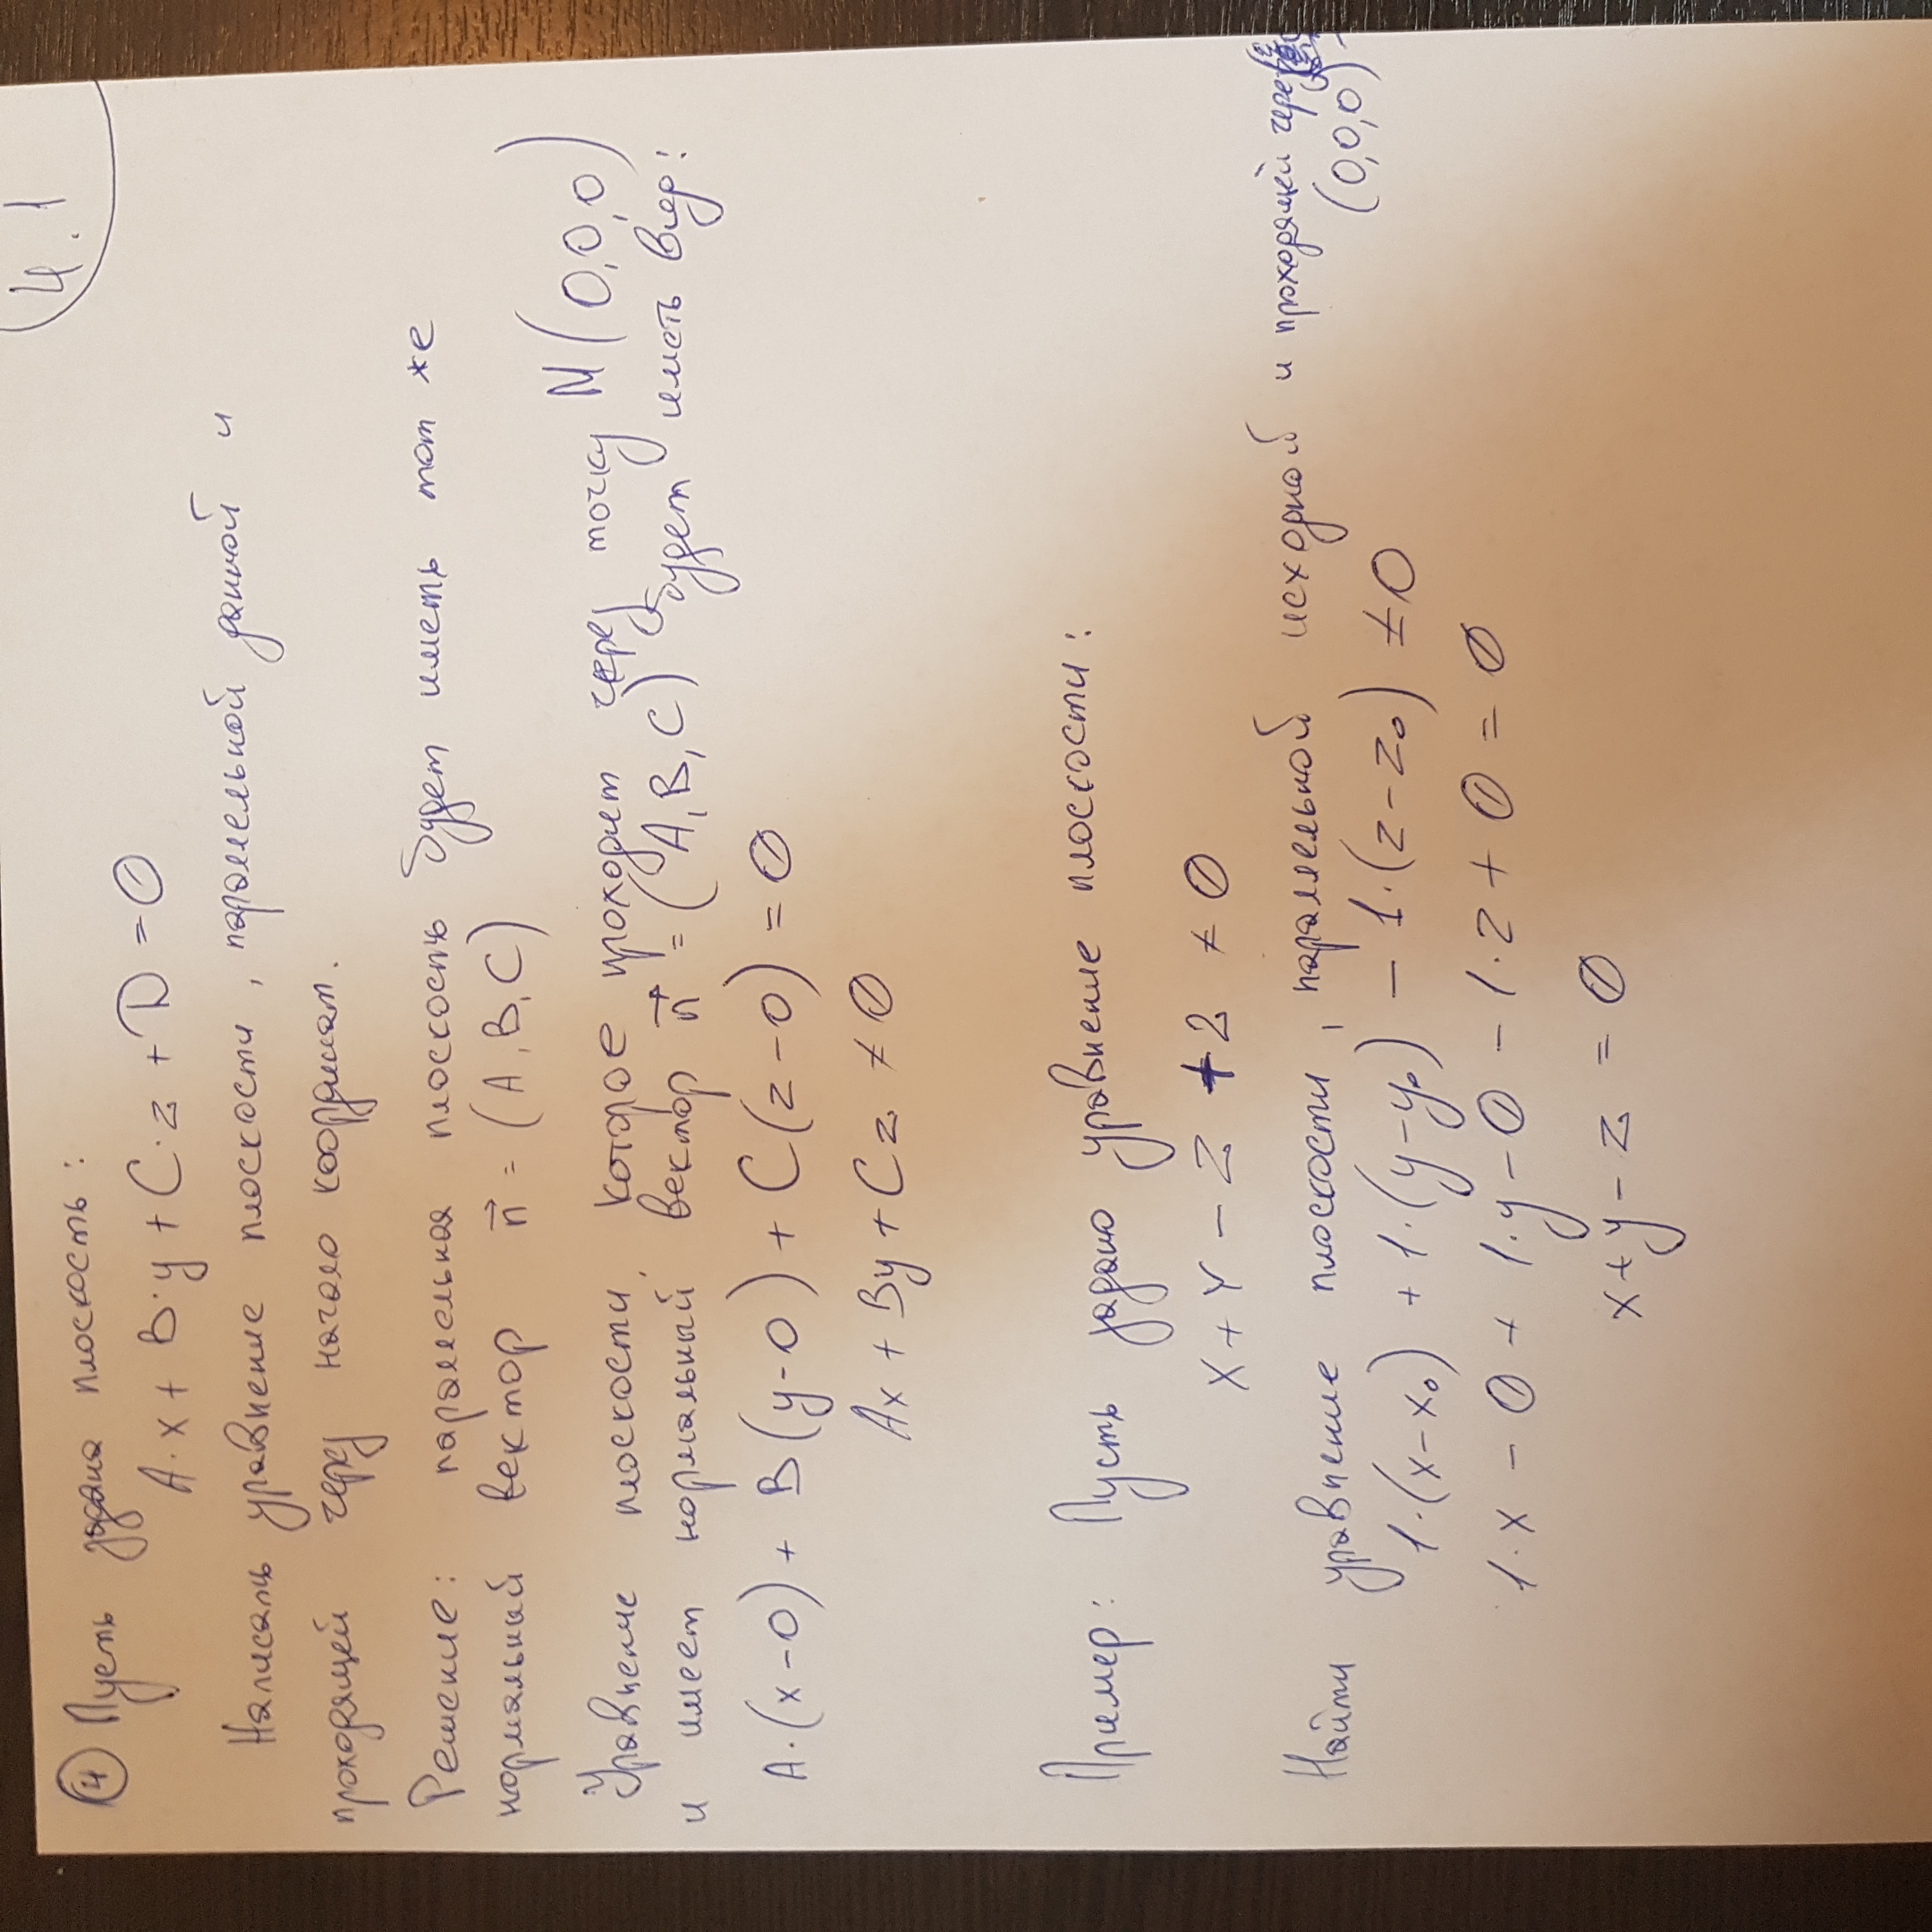 4.1
④ Пусть задана плоскость:
A·x + B·y + C·z + D = 0
Написать уравнение плоскости, параллельной данной и
проходящей через начало координат.
Решение: параллельная плоскость будет иметь тот же
нормальный вектор n⃗ = (A, B, C)
Уравнение плоскости, которое проходит через точку M(0,0,0)
и имеет нормальный вектор n⃗ = (A, B, C) будет иметь вид:
A·(x-0) + B(y-0) + C(z-0) = 0
Ax + By + Cz = 0
Пример: Пусть задано уравнение плоскости:
X + Y - Z + 2 = 0
Найти уравнение плоскости, параллельной исходной и проходящей через
(0,0,0)
1·(x-x₀) + 1·(y-y₀) - 1·(z-z₀) = 0
1·x - 0 + 1·y - 0 - 1·z + 0 = 0
x + y - z = 0